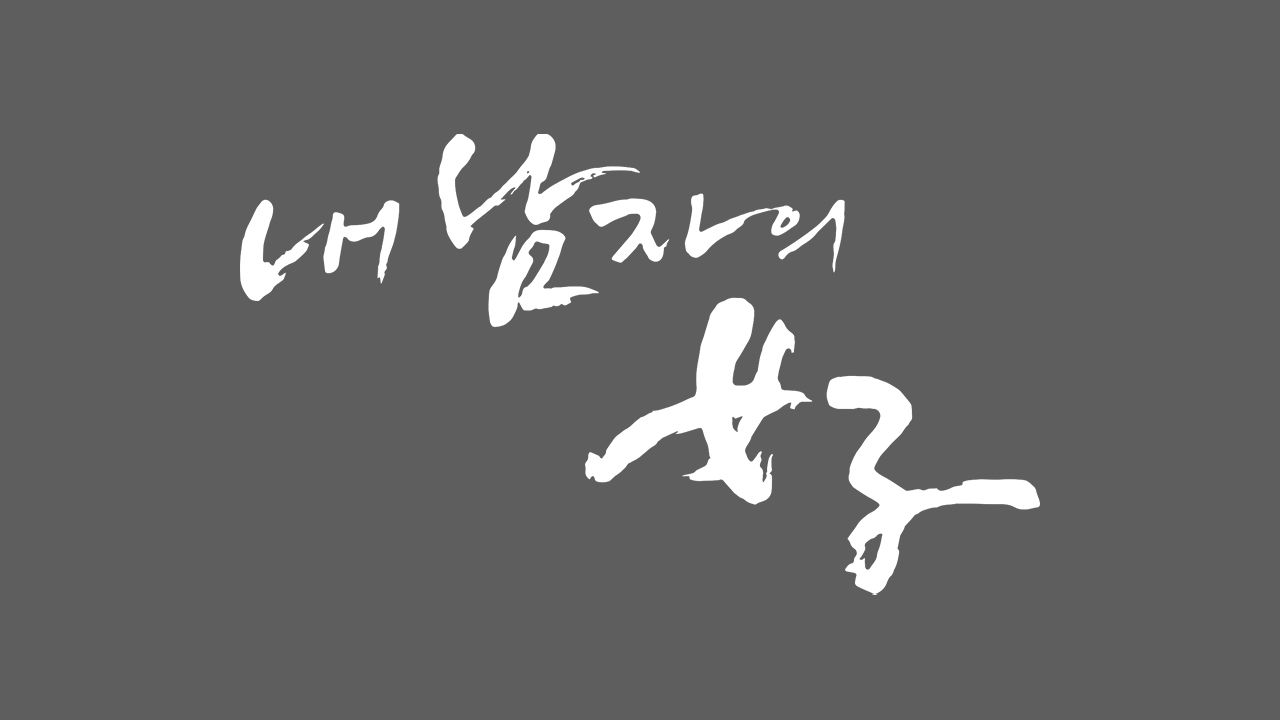 내 남자의
女子